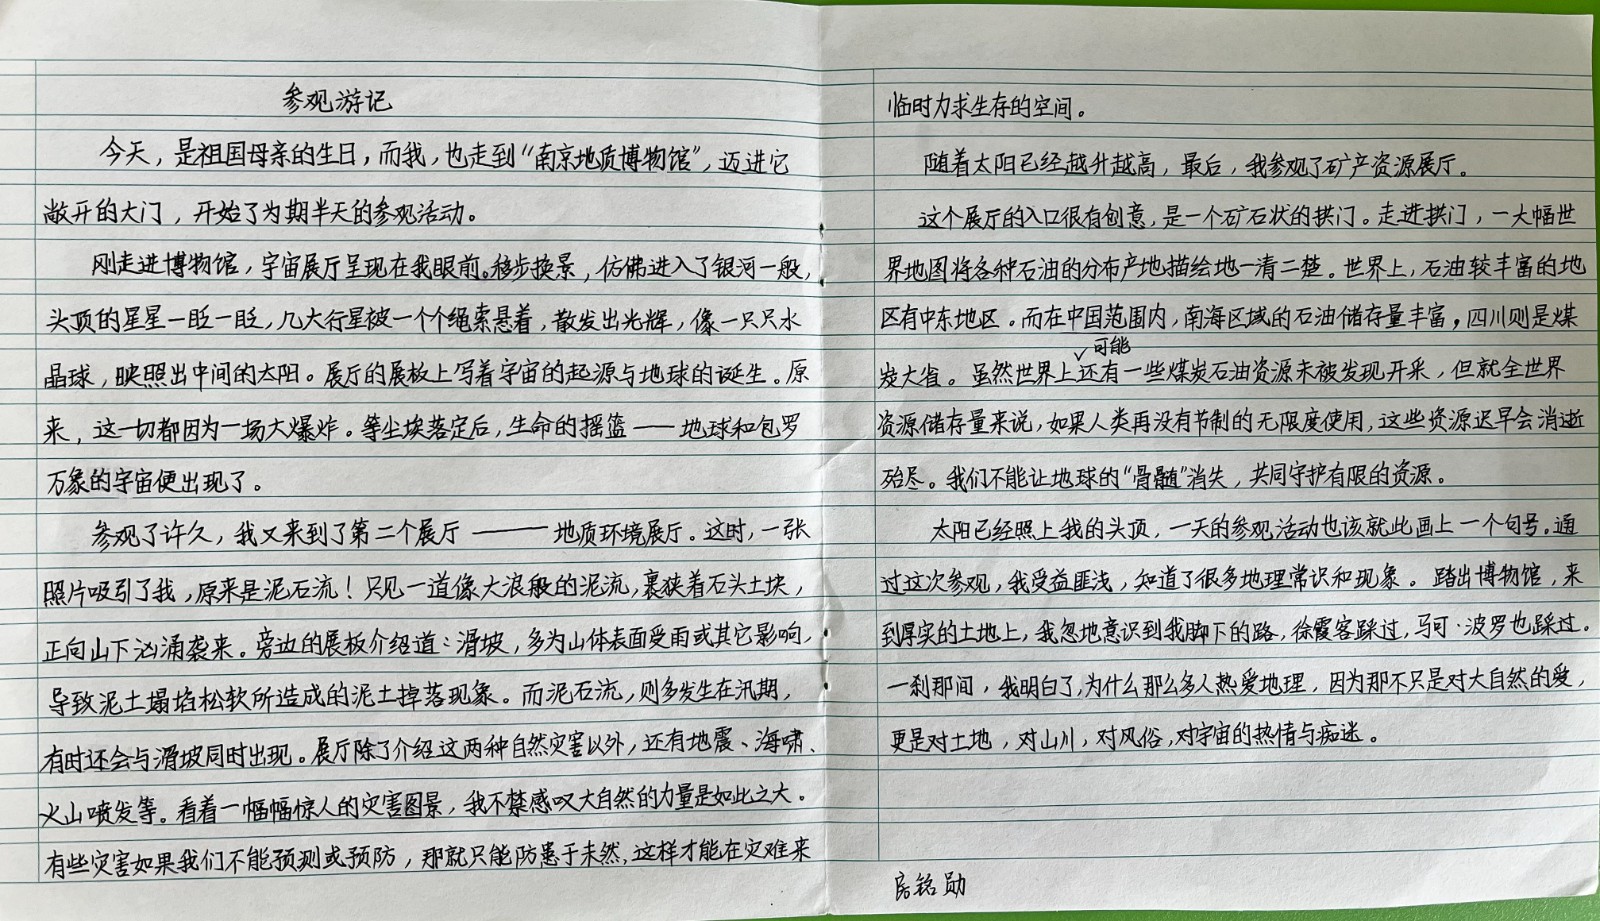 参观游记
今天，是祖国母亲的生日，而我，也走到“南京地质博物馆”，迈进它
敞开的大门，开始了为期半天的参观活动。
刚走进博物馆，宇宙展厅呈现在我眼前。移步换景，仿佛进入了银河一般，
头顶的星星一眨一眨，几大行星被一个个绳索悬着，散发出光辉，像一只只水
晶球，映照出中间的太阳。展厅的展板上写着宇宙的起源与地球的诞生。原
来，这一切都因为一场大爆炸。等尘埃落定后，生命的摇篮——地球和包罗
万象的宇宙便出现了。
参观了许久，我又来到了第二个展厅——地质环境展厅。这时，一张
照片吸引了我，原来是泥石流！只见一道像大浪般的泥流，裹狭着石头土块，
正向山下汹涌袭来。旁边的展板介绍道：滑坡，多为山体表面受雨或其它影响，
导致泥土塌陷松软所造成的泥土掉落现象。而泥石流，则多发生在汛期，
有时还会与滑坡同时出现。展厅除了介绍这两种自然灾害以外，还有地震、海啸、
火山喷发等。看着一幅幅惊人的灾害图景，我不禁感叹大自然的力量是如此之大。
有些灾害如果我们不能预测或预防，那就只能防患于未然，这样才能在灾难来
临时力求生存的空间。
随着太阳已经越升越高，最后，我参观了矿产资源展厅。
这个展厅的入口很有创意，是一个矿石状的拱门。走进拱门，一大幅世
界地图将各种石油的分布产地描绘地一清二楚。世界上，石油较丰富的地
区有中东地区。而在中国范围内，南海区域的石油储存量丰富，四川则是煤
炭大省。虽然世界上可能还有一些煤炭石油资源未被发现开采，但就全世界
资源储存量来说，如果人类再没有节制的无限度使用，这些资源迟早会消逝
殆尽。我们不能让地球的“骨髓”消失，共同守护有限的资源。
太阳已经照上我的头顶，一天的参观活动也该就此画上一个句号。通
过这次参观，我受益匪浅，知道了很多地理常识和现象。踏出博物馆，来
到厚实的土地上，我忽地意识到我脚下的路，徐霞客踩过，马可·波罗也踩过。
一刹那间，我明白了，为什么那么多人热爱地理，因为那不只是对大自然的爱，
更是对土地，对山川，对风俗，对宇宙的热情与痴迷。
房铭勋